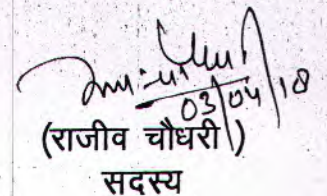 03/04/18
(राजीव चौधरी)
सदस्य